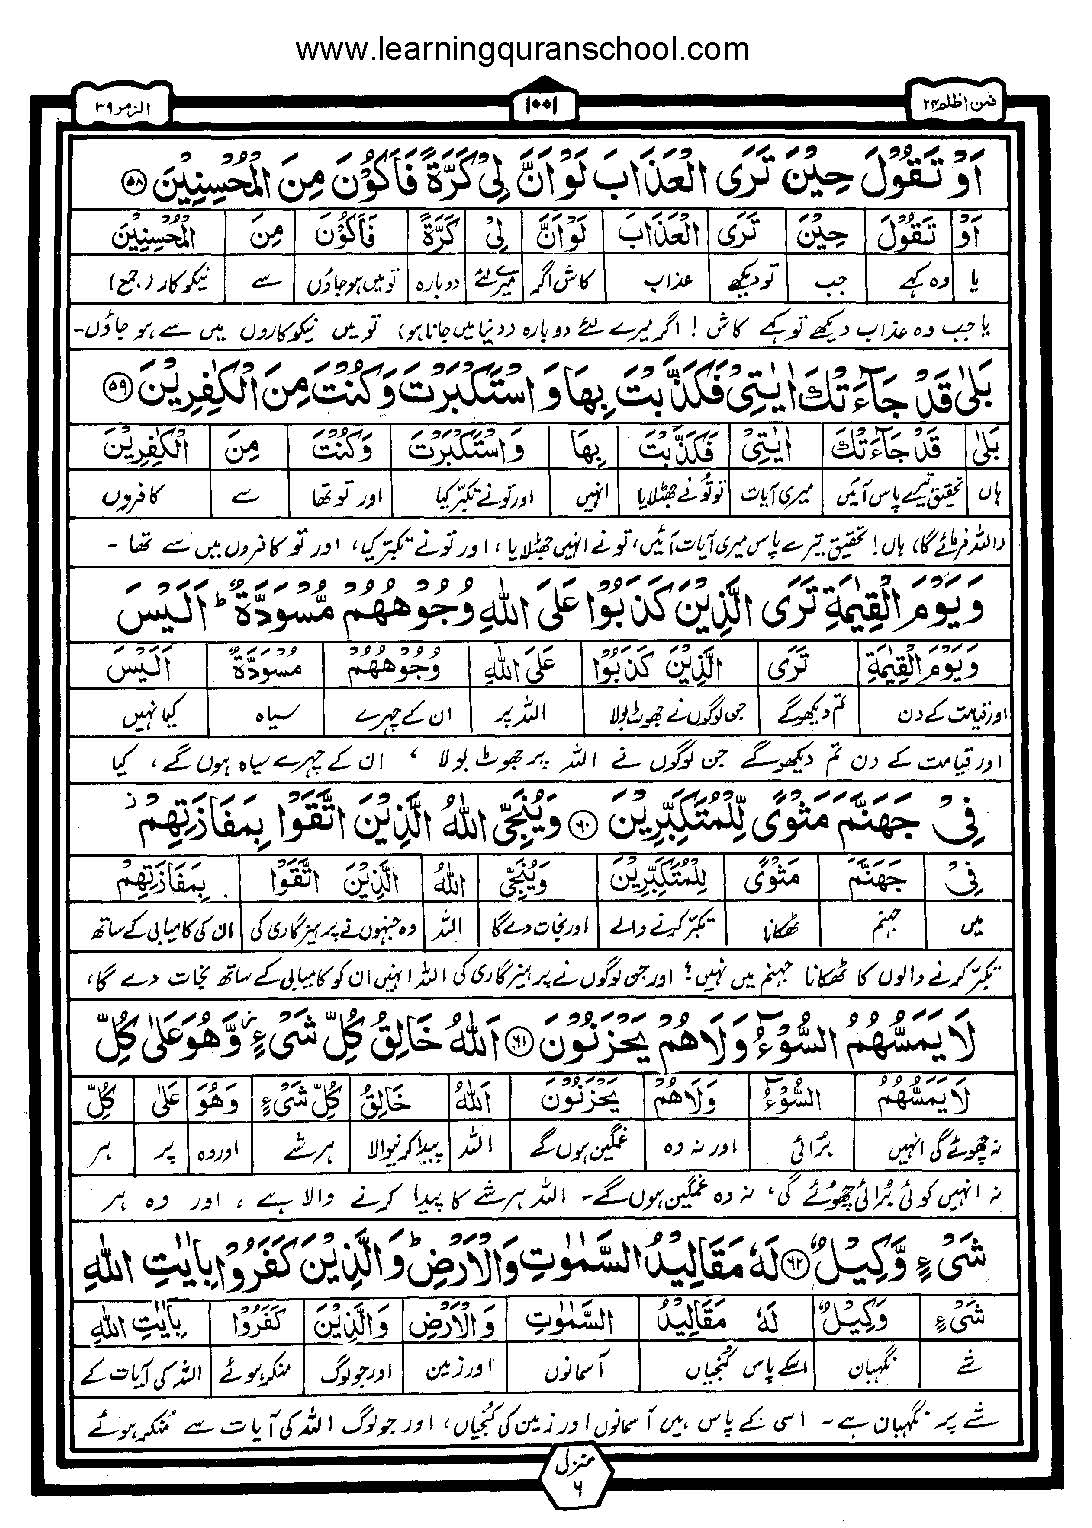 www.learningquranschool.com
فمن اظلم ۲۴ ۱۰۰۱ الزمر ۳۹
اَوْ تَقُوْلَ حِيْنَ تَرَى الْعَذَابَ لَوْ اَنَّ لِيْ كَرَّةً فَاَكُوْنَ مِنَ الْمُحْسِنِيْنَ ۵۸
اَوْ تَقُوْلَ حِيْنَ تَرَى الْعَذَابَ لَوْ اَنَّ لِيْ كَرَّةً فَاَكُوْنَ مِنَ الْمُحْسِنِيْنَ
یا وہ کہے جب تو دیکھے عذاب کاش اگر میرے لئے دوبارہ تو میں ہو جاؤں سے نیکوکار (جمع)
یا جب وہ عذاب دیکھے تو کہے کاش! اگر میرے لئے دوبارہ (دنیا میں جانا ہو) تو میں نیکوکاروں میں سے ہو جاؤں۔
بَلٰى قَدْ جَآءَتْكَ اٰيٰتِيْ فَكَذَّبْتَ بِهَا وَ اسْتَكْبَرْتَ وَ كُنْتَ مِنَ الْكٰفِرِيْنَ ۵۹
بَلٰى قَدْ جَآءَتْكَ اٰيٰتِيْ فَكَذَّبْتَ بِهَا وَ اسْتَكْبَرْتَ وَكُنْتَ مِنَ الْكٰفِرِيْنَ
ہاں تحقیق تیرے پاس آئیں میری آیات تو تُو نے جھٹلایا انہیں اور تو نے تکبر کیا اور تو تھا سے کافروں
(اللہ فرمائے گا) ہاں! تحقیق تیرے پاس میری آیات آئیں، تو نے انہیں جھٹلایا، اور تو نے تکبر کیا، اور تو کافروں میں سے تھا۔
وَ يَوْمَ الْقِيٰمَةِ تَرَى الَّذِيْنَ كَذَبُوْا عَلَى اللّٰهِ وُجُوْهُهُمْ مُّسْوَدَّةٌ ؕ اَلَيْسَ
وَ يَوْمَ الْقِيٰمَةِ تَرَى الَّذِيْنَ كَذَبُوْا عَلَى اللّٰهِ وُجُوْهُهُمْ مُسْوَدَّةٌ اَلَيْسَ
اور قیامت کے دن تم دیکھو گے جن لوگوں نے جھوٹ بولا اللہ پر ان کے چہرے سیاہ کیا نہیں
اور قیامت کے دن تم دیکھو گے جن لوگوں نے اللہ پر جھوٹ بولا، ان کے چہرے سیاہ ہوں گے، کیا
فِيْ جَهَنَّمَ مَثْوًى لِّلْمُتَكَبِّرِيْنَ ۶۰ وَيُنَجِّي اللّٰهُ الَّذِيْنَ اتَّقَوْا بِمَفَازَتِهِمْ ز
فِيْ جَهَنَّمَ مَثْوًى لِلْمُتَكَبِّرِيْنَ وَيُنَجِّي اللّٰهُ الَّذِيْنَ اتَّقَوْا بِمَفَازَتِهِمْ
میں جہنم ٹھکانا تکبر کرنے والے اور نجات دے گا اللہ وہ جنہوں نے پرہیزگاری کی ان کی کامیابی کے ساتھ
تکبر کرنے والوں کا ٹھکانا جہنم میں نہیں؟ اور جن لوگوں نے پرہیزگاری کی اللہ انہیں ان کو کامیابی کے ساتھ نجات دے گا،
لَا يَمَسُّهُمُ السُّوْٓءُ وَلَا هُمْ يَحْزَنُوْنَ ۶۱ اَللّٰهُ خَالِقُ كُلِّ شَيْءٍ وَّهُوَ عَلٰى كُلِّ
لَا يَمَسُّهُمُ السُّوْٓءُ وَلَا هُمْ يَحْزَنُوْنَ اَللّٰهُ خَالِقُ كُلِّ شَيْءٍ وَهُوَ عَلٰى كُلِّ
نہ چھوئے گی انہیں برائی اور نہ وہ غمگین ہوں گے اللہ پیدا کرنیوالا ہر شے اور وہ پر ہر
نہ انہیں کوئی برائی چھوئے گی، نہ وہ غمگین ہوں گے۔ اللہ ہر شے کا پیدا کرنے والا ہے، اور وہ ہر
شَيْءٍ وَّكِيْلٌ ۶۲ لَهٗ مَقَالِيْدُ السَّمٰوٰتِ وَالْاَرْضِ ؕ وَ الَّذِيْنَ كَفَرُوْا بِاٰيٰتِ اللّٰهِ
شَيْءٍ وَكِيْلٌ لَهٗ مَقَالِيْدُ السَّمٰوٰتِ وَ الْاَرْضِ وَالَّذِيْنَ كَفَرُوْا بِاٰيٰتِ اللّٰهِ
شے نگہبان اسکے پاس کنجیاں آسمانوں اور زمین اور جو لوگ منکر ہوئے اللہ کی آیات کے
شے پر نگہبان ہے۔ اسی کے پاس ہیں آسمانوں اور زمین کی کنجیاں، اور جو لوگ اللہ کی آیات سے منکر ہوئے
منزل
۶